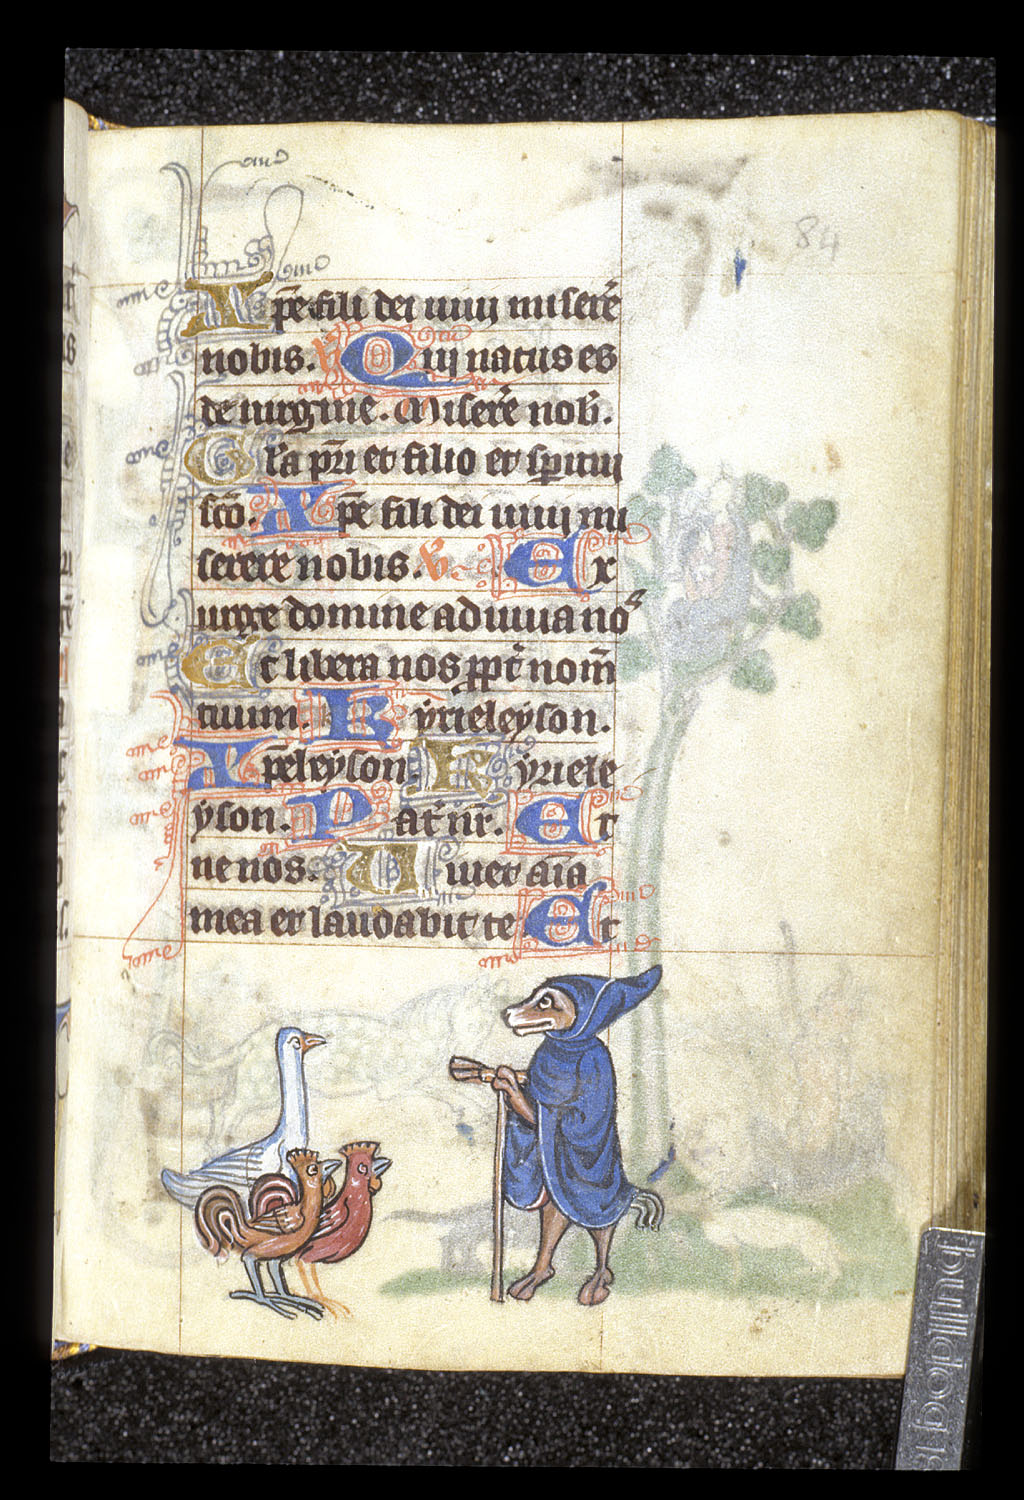 84
Xp̄e fili dei uiui miserē
nobis. V Qui natus es
de uirgine. Miserē nob̄.
Gl̄a pr̄i et filio et spiritui
sc̄o. Xp̄e fili dei uiui mi
serere nobis. V Ex
urge domine adiuua nos
Et libera nos ppt̄ nom̄
tuum. Kyrieleyson.
Xpeleyson. Kyriele
yson. Pat̄ nr̄. Et
ne nos. Uiuet aīa
mea et laudabit te Et
bulldog